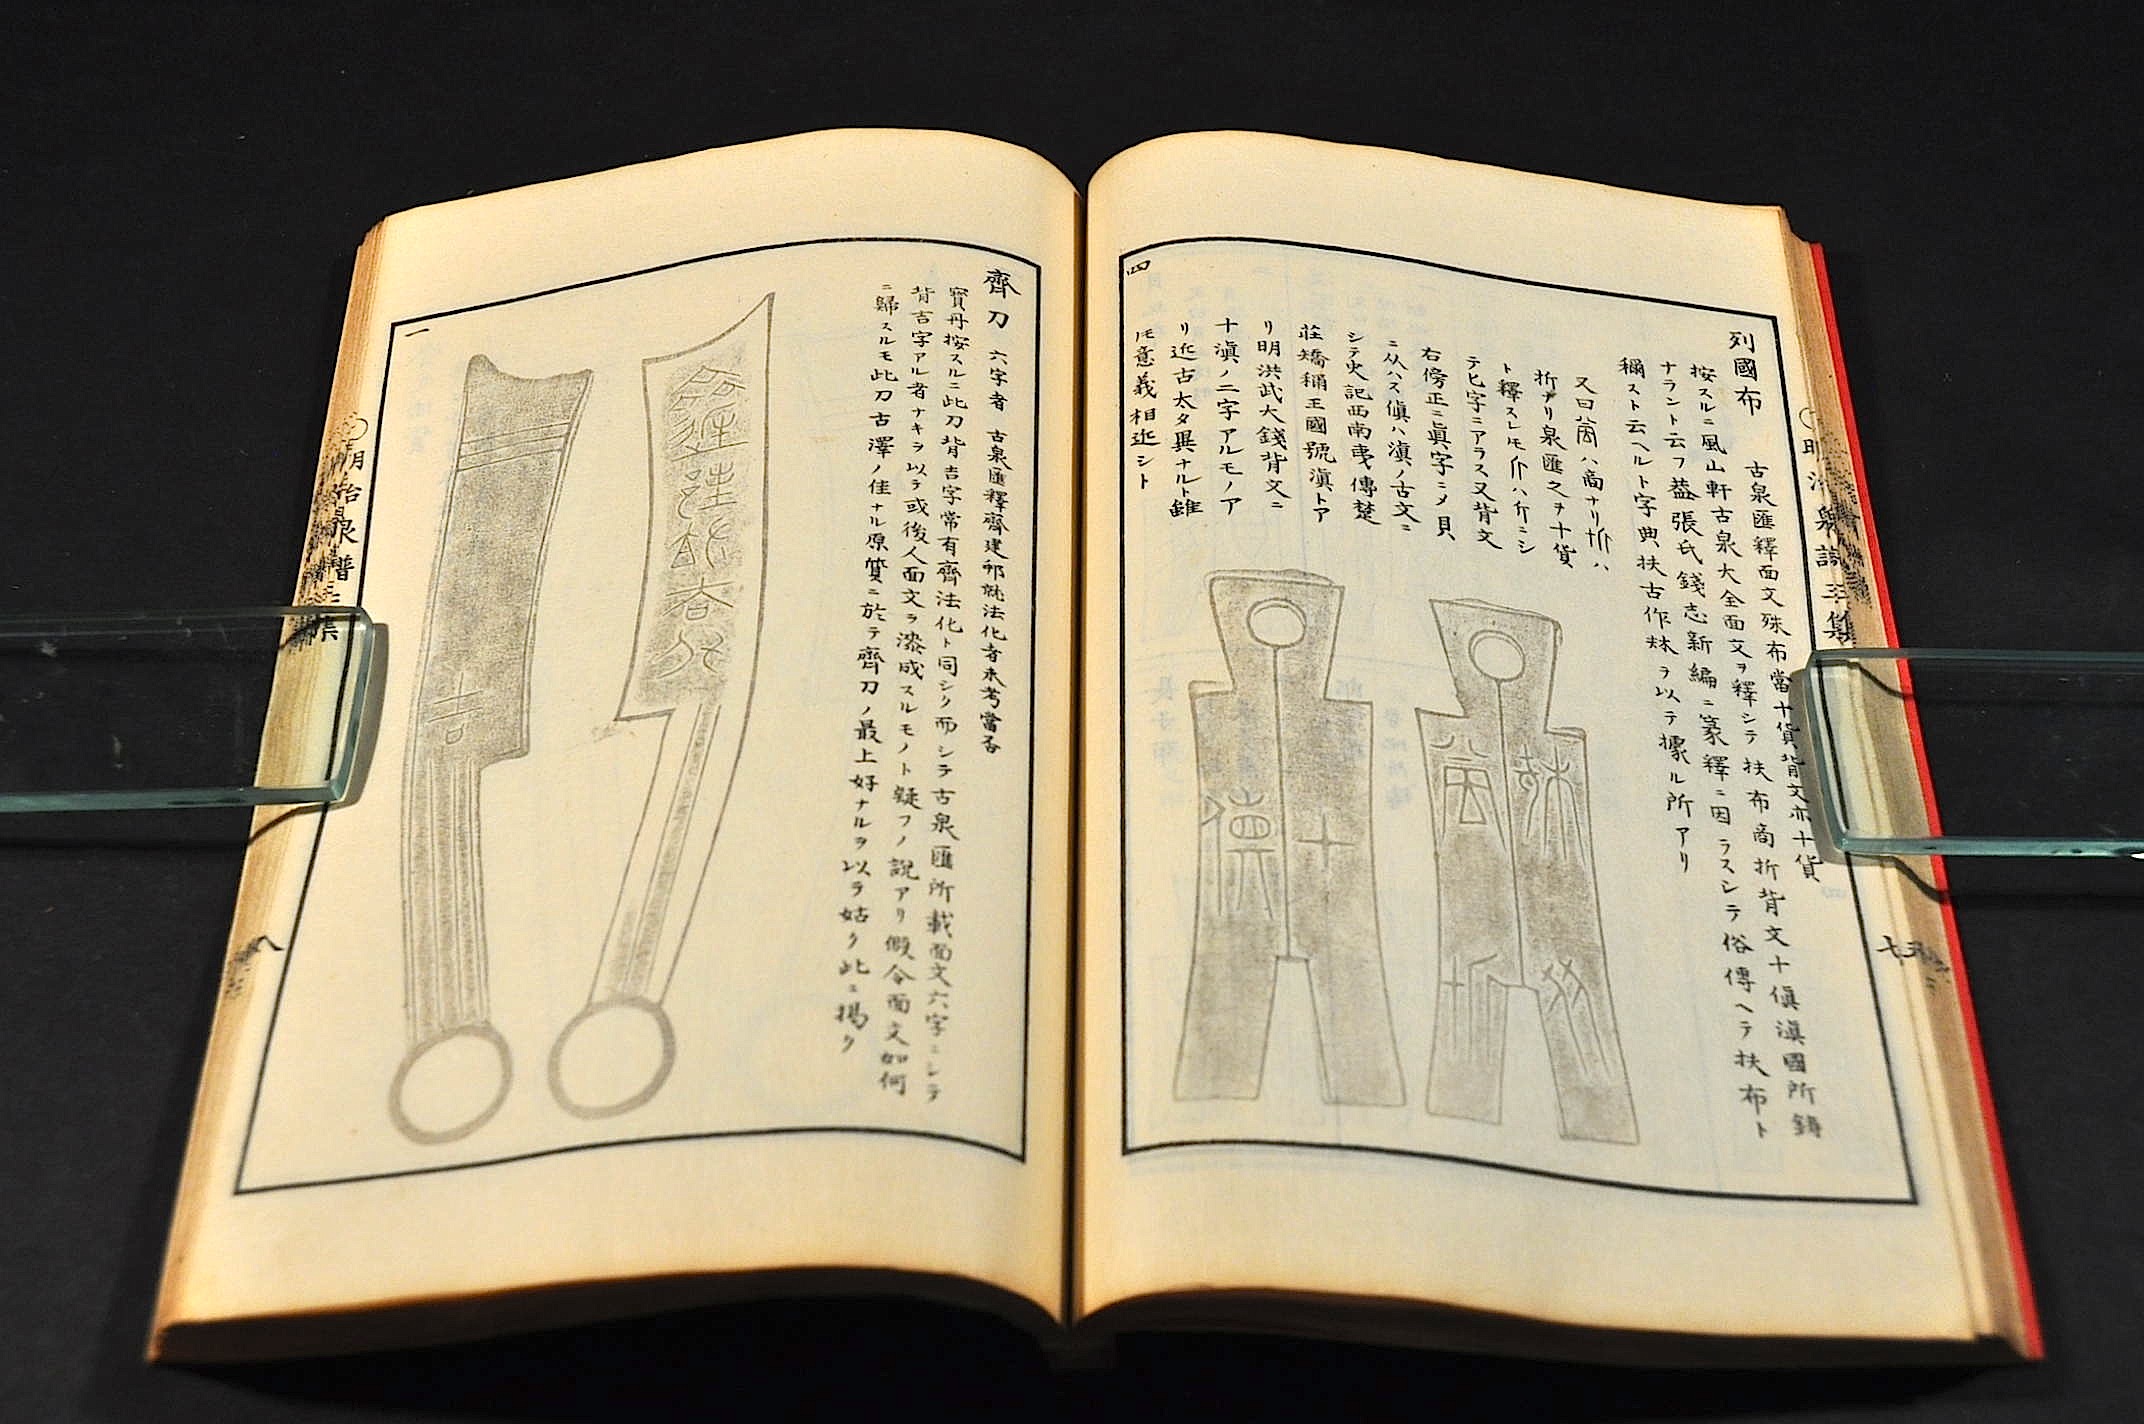 列國布
古泉匯釋面文殊布當十貨背文亦十貨
按スルニ風山軒古泉大全面文ヲ釋シテ扶布商折背文十傎滇國所鑄
ナラント云フ益張氏錢志新編ニ篆釋ニ因ラスシテ俗傳ヘテ扶布ト
稱スト云ヘルト字典扶古作㚘ヲ以テ據ル所アリ
又曰
ハ商ナリ
ハ
折ナリ泉匯之ヲ十貨
ト釋スレモ
ハ介ニシ
テ匕字ニアラス又背文
右傍正ニ眞字ニメ貝
ニ从ハス傎ハ滇ノ古文ニ
シテ史記西南夷傳楚
莊矯稱王國號滇トア
リ明洪武大錢背文ニ
十滇ノ二字アルモノア
リ近古太タ異ナルト雖
𪜈意義相近シト
四
明治泉譜三集
齊刀
六字者
古泉匯釋齊建邦就法化者未考當否
寶丹按スルニ此刀背吉字常有齊法化ト同シク而シテ古泉匯所載面文六字ニシテ
背吉字アル者ナキヲ以テ或後人面文ヲ漆成スルモノト疑フノ說アリ假令面文如何
ニ歸スルモ此刀古澤ノ佳ナル原質ニ於テ齊刀ノ最上好ナルヲ以テ姑ク此ニ揭ク
一
明治泉譜三集
八